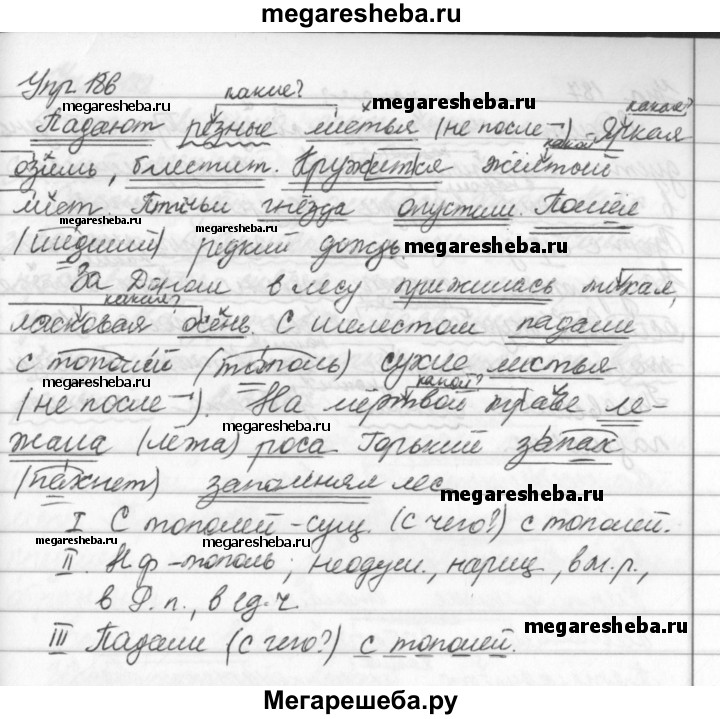 megaresheba.ru
Упр 186
какие?
какая?
megaresheba.ru
megaresheba.ru
Падают резные листья (не после ¬) - Яркая
какой?
озимь, блестит. Кружится жёлтый
лист. Птичьи гнёзда опустили. Пошёл
megaresheba.ru
megaresheba.ru
(шедший) редкий дождь.
megaresheba.ru
За Доном в лесу прижилась тихая,
какая?
ласковая осень. С шелестом падали
megaresheba.ru
с тополей (тополь) сухие листья
megaresheba.ru
какой?
(не после ¬). На мертвой траве ле-
megaresheba.ru
жала (лёжа) роса. Горький запах
(пахнет) заполнял лес
megaresheba.ru
I С тополей - сущ. (с чего?) с тополей.
megaresheba.ru
megaresheba.ru
II. Н.ф - тополь; неодуш., нариц., в м.р.,
в Р.п., в ед.ч
megaresheba.ru
III Падали (с чего?) с тополей.
Мегарешеба.ру